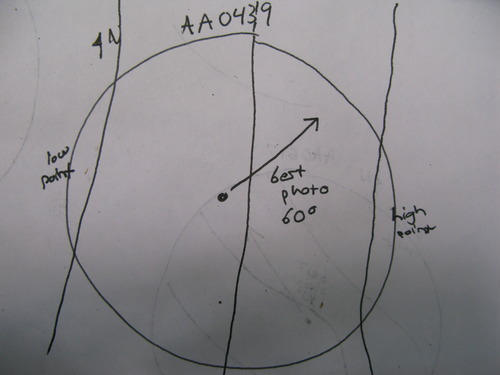 4N
low
point
best
photo
60°
high
point